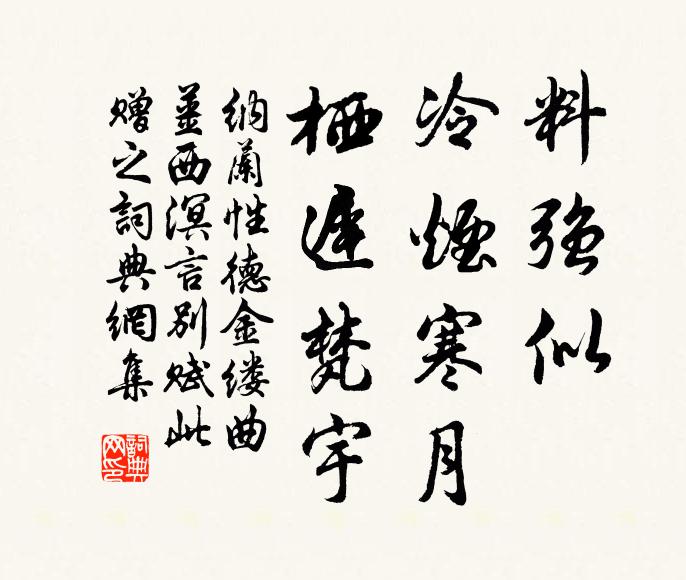 料強似
冷煙寒月
栖遲梵宇
納蘭性德金縷曲
薑西溟言別賦此
贈之詞典網集
詞典网印